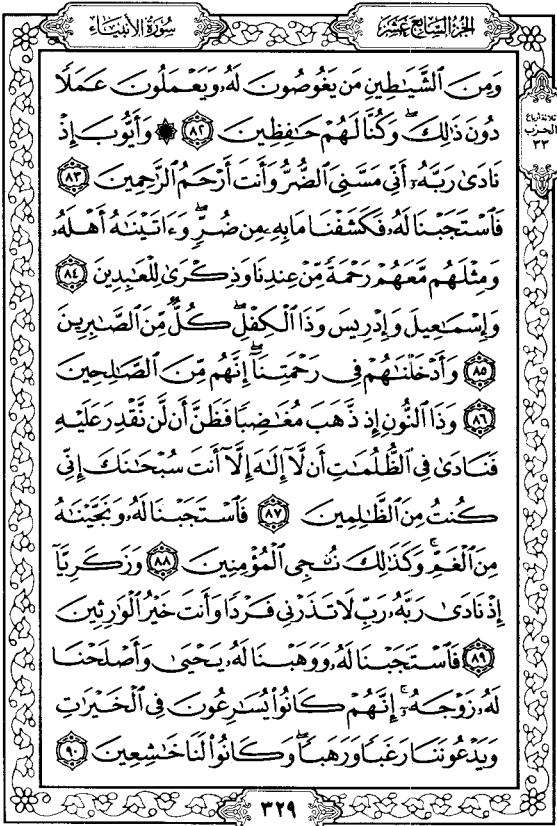 الجزء السابع عشر
سورة الأنبياء
ثلاثة أرباع
الحزب
٣٣
وَمِنَ ٱلشَّيَٰطِينِ مَن يَغُوصُونَ لَهُۥ وَيَعْمَلُونَ عَمَلًا
دُونَ ذَٰلِكَ ۖ وَكُنَّا لَهُمْ حَٰفِظِينَ ٨٢ ۞ وَأَيُّوبَ إِذْ
نَادَىٰ رَبَّهُۥٓ أَنِّى مَسَّنِىَ ٱلضُّرُّ وَأَنتَ أَرْحَمُ ٱلرَّٰحِمِينَ ٨٣
فَٱسْتَجَبْنَا لَهُۥ فَكَشَفْنَا مَا بِهِۦ مِن ضُرٍّ ۖ وَءَاتَيْنَٰهُ أَهْلَهُۥ
وَمِثْلَهُم مَّعَهُمْ رَحْمَةً مِّنْ عِندِنَا وَذِكْرَىٰ لِلْعَٰبِدِينَ ٨٤
وَإِسْمَٰعِيلَ وَإِدْرِيسَ وَذَا ٱلْكِفْلِ ۖ كُلٌّ مِّنَ ٱلصَّٰبِرِينَ
٨٥ وَأَدْخَلْنَٰهُمْ فِى رَحْمَتِنَآ ۖ إِنَّهُم مِّنَ ٱلصَّٰلِحِينَ
٨٦ وَذَا ٱلنُّونِ إِذ ذَّهَبَ مُغَٰضِبًا فَظَنَّ أَن لَّن نَّقْدِرَ عَلَيْهِ
فَنَادَىٰ فِى ٱلظُّلُمَٰتِ أَن لَّآ إِلَٰهَ إِلَّآ أَنتَ سُبْحَٰنَكَ إِنِّى
كُنتُ مِنَ ٱلظَّٰلِمِينَ ٨٧ فَٱسْتَجَبْنَا لَهُۥ وَنَجَّيْنَٰهُ
مِنَ ٱلْغَمِّ ۚ وَكَذَٰلِكَ نُۨجِى ٱلْمُؤْمِنِينَ ٨٨ وَزَكَرِيَّآ
إِذْ نَادَىٰ رَبَّهُۥ رَبِّ لَا تَذَرْنِى فَرْدًا وَأَنتَ خَيْرُ ٱلْوَٰرِثِينَ
٨٩ فَٱسْتَجَبْنَا لَهُۥ وَوَهَبْنَا لَهُۥ يَحْيَىٰ وَأَصْلَحْنَا
لَهُۥ زَوْجَهُۥٓ ۚ إِنَّهُمْ كَانُوا۟ يُسَٰرِعُونَ فِى ٱلْخَيْرَٰتِ
وَيَدْعُونَنَا رَغَبًا وَرَهَبًا ۖ وَكَانُوا۟ لَنَا خَٰشِعِينَ ٩٠
٣٢٩